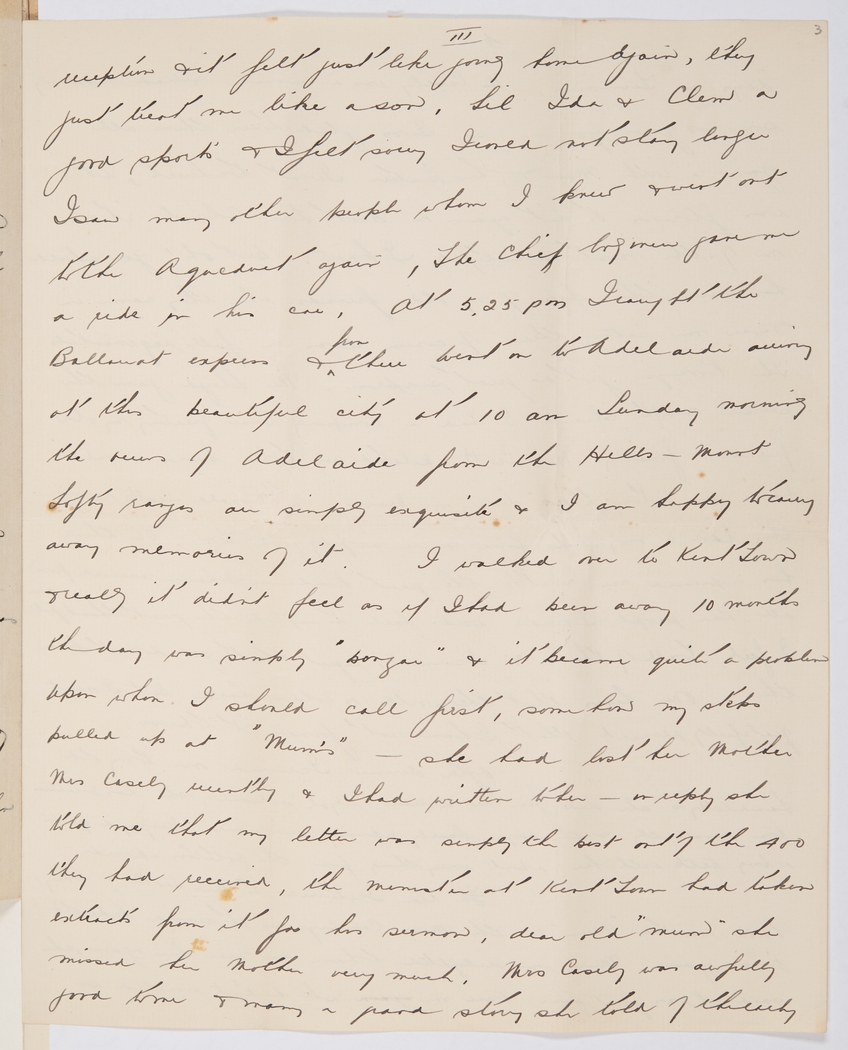 III
3
reception & it felt just like going home again, they
just treat me like a son, Lil Ida & Clem a
good sports & I felt sorry I could not stay longer
I saw many other people whom I knew & went out
to the Aqueduct again, The Chief Engineer gave me
a ride in his car. At 5.25 pm I caught the
Ballarat express & from there went on to Adelaide arriving
at this beautiful city at 10 am Sunday morning
the views of Adelaide from the Hills – Mount
Lofty ranges are simply exquisite & I am happy to carry
away memories of it. I walked over to Kent Town
& really it didn't feel as if I had been away 10 months
the day was simply "bonzar" & it became quite a problem
upon whom I should call first, some how my steps
pulled up at "Mum's" – she had lost her Mother
Mrs Casely recently & I had written to her – in reply she
told me that my letter was simply the best out of the 400
they had received, the minister at Kent Town had taken
extracts from it for his sermon, dear old "mum" she
missed her Mother very much. Mrs Casely was awfully
good to me & many a good story she told of the early